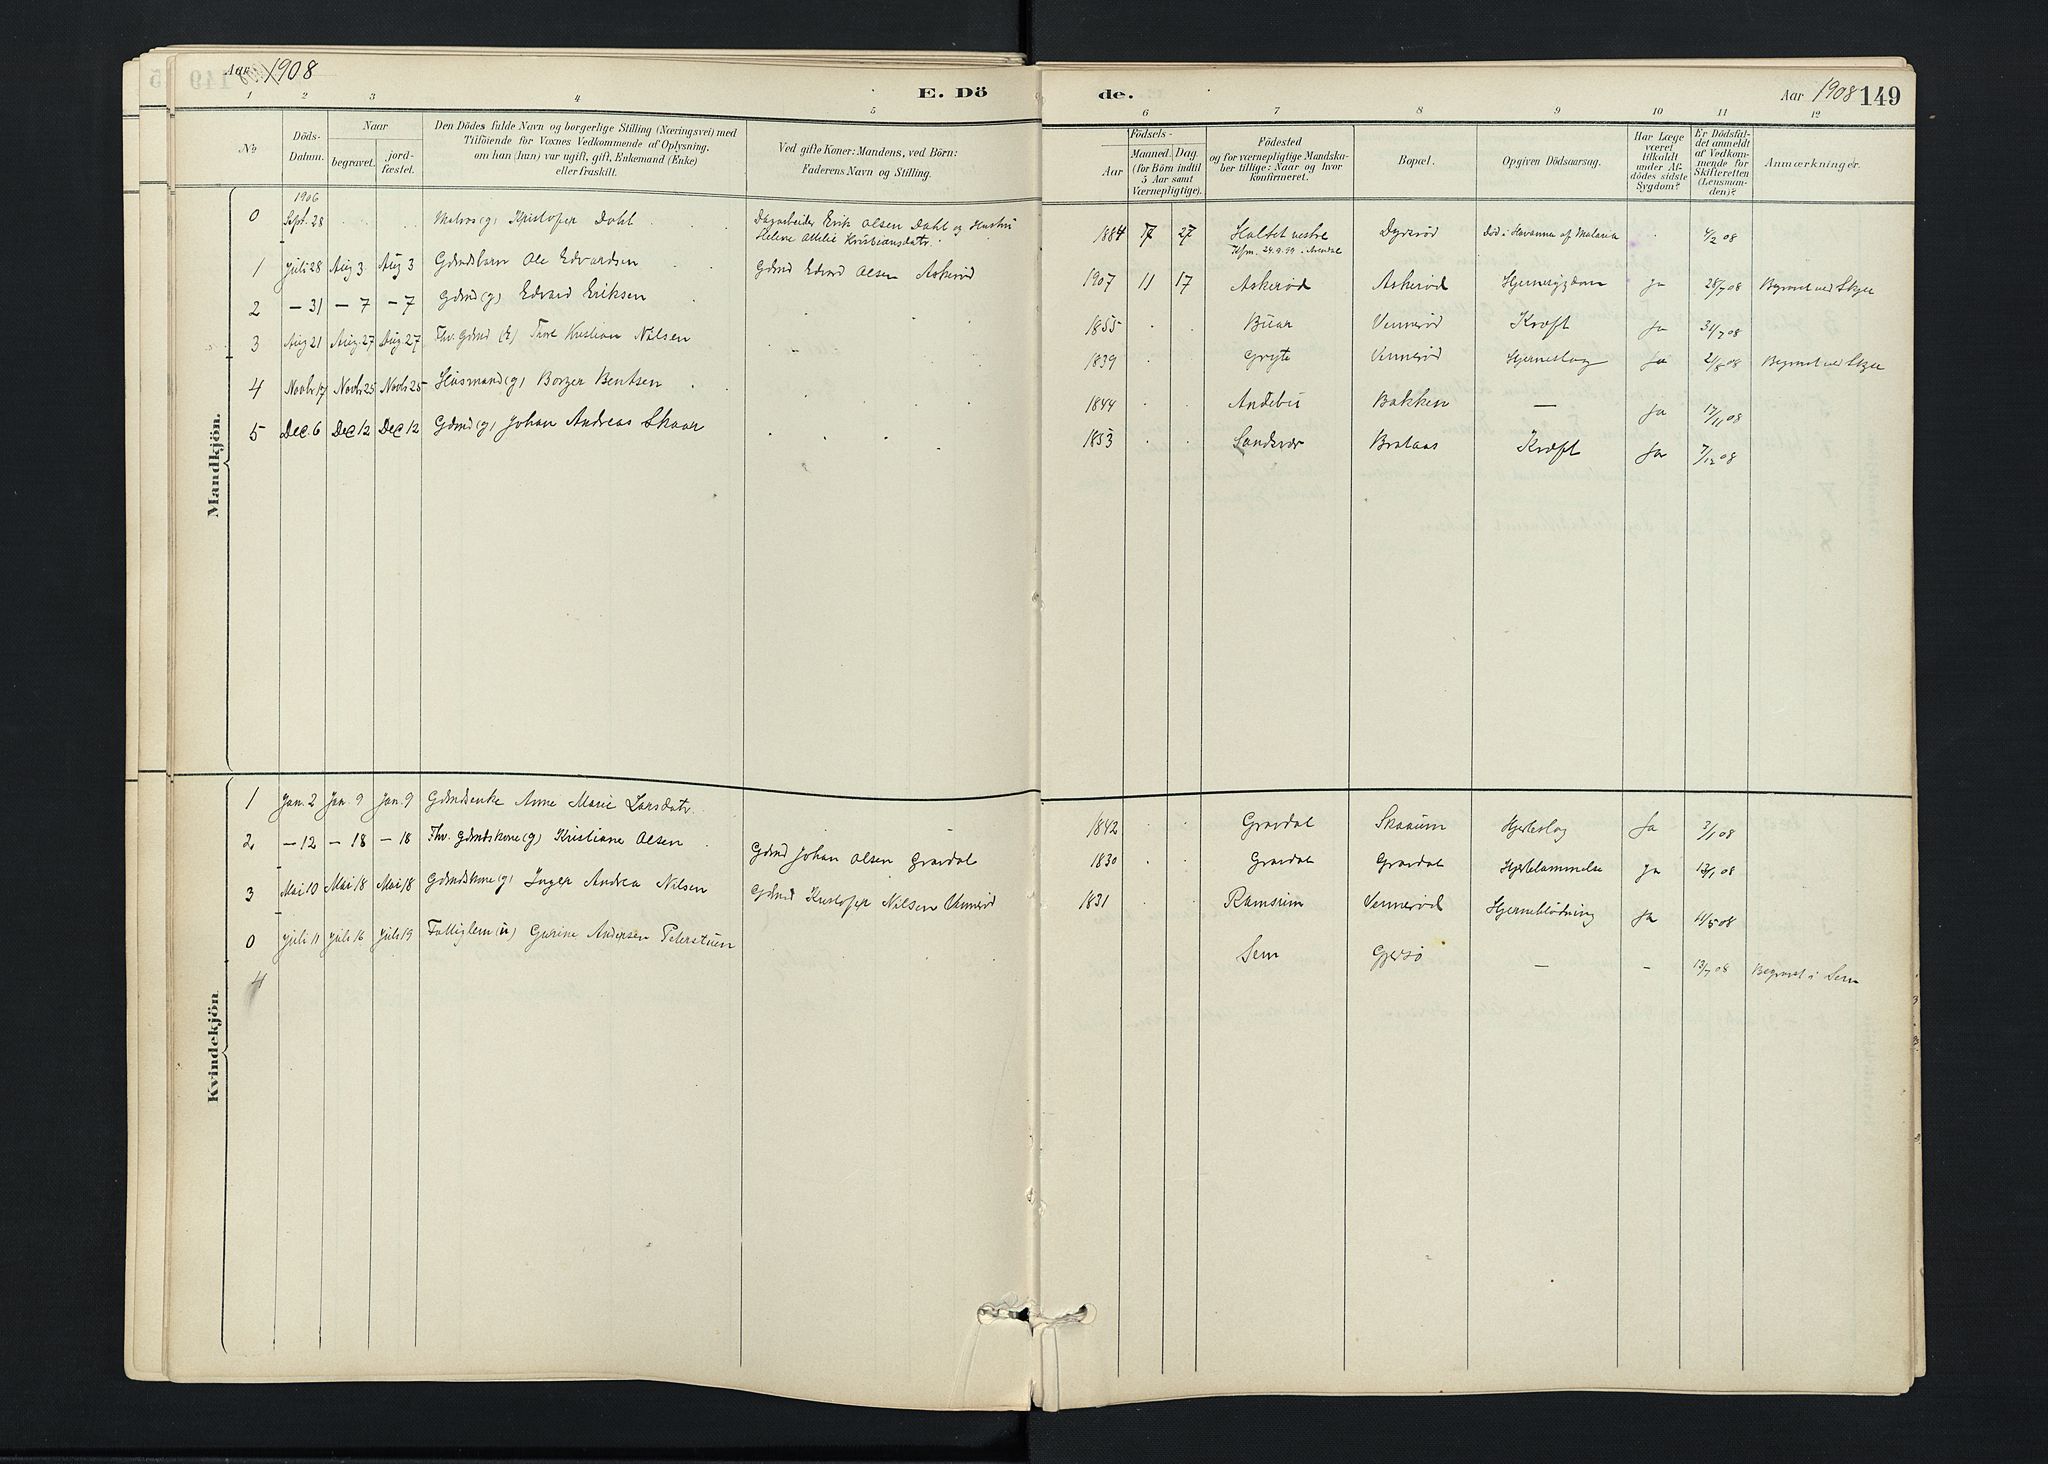 Aar 1908
E. Dö
de.
Aar 1908 149
1 2 3 4 5 6 7 8 9 10 11 12
No.
Döds-
Datum.
Naar
begravet.
jord-
fæstet.
Den Dödes fulde Navn og borgerlige Stilling (Næringsvei) med
Tilföiende for Voxnes Vedkommende af Oplysning,
om han (hun) var ugift, gift, Enkemand (Enke)
eller fraskilt.
Ved gifte Koner: Mandens, ved Börn:
Faderens Navn og Stilling.
Födsels-
Aar
Maaned. Dag.
(for Börn indtil
5 Aar samt
Værnepligtige).
Födested
og for værnepligtige Mandska-
ber tillige: Naar og hvor
konfirmeret.
Bopæl.
Opgiven Dödsaarsag.
Har Læge
været
tilkaldt
under Af-
dödes sidste
Sygdom?
Er Dödsfal-
det anmeldt
af Vedkom-
mende for
Skifteretten
(Lensman-
den)?
Anmærkninger.
Mandkjön.
1906
0 Sept. 28 Matros (g) Kristofer Dahl Dagarbeider Erik Olsen Dahl og Hustru
Helene Attelie Kristiansdatr. 1884 7 27 Haltet vestre Dyrsrød Död i Havanna af Malaria 4/2 08
Kfm. 24.9.99 i Arendal
1 Juli 28 Aug 3 Aug 3 Gdmdsbarn Ole Edvardsen Gdmd Edvard Olsen Askerød 1907 11 17 Askerød Askerød Hjernesygdom ja 28/7 08 Begravet ved Skjee
2 — 31 — 7 — 7 Gdmd (g) Edvard Eriksen 1855 Buar Vennerød Kræft Ja 31/7 08
3 Aug 21 Aug. 27 Aug. 27 Fhv. Gdmd (E) Thore Kristian Nilsen 1839 Gryte Vennerød Hjerneslag Ja 21/8 08 Begravet ved Skjee
4 Novbr 17 Novbr 25 Novbr 25 Husmand (g) Borger Bentsen 1844 Andebu Bakken — Ja 17/11 08
5 Dec. 6 Dec 12 Dec 12 Gdmd (g) Johan Andreas Skaar 1853 Sandsvær Brataas Kræft Ja 7/12 08
Kvindekjön
1 Jan. 2 Jan. 9 Jan. 9 Gdmdsenke Anne Marie Larsdatr. 1842 Gravdal Skaaum Hjerteslag Ja 3/1 08
2 — 12 — 18 — 18 Fhv. Gdmdskone (g) Kristiane Olsen Gdmd Johan Olsen Gravdal 1830 Gravdal Gravdal Hjertelammelse ja 13/1 08
3 Mai 10 Mai 18 Mai 18 Gdmdskone (g) Inger Andrea Nilsen Gdmd Kristofer Nilsen Vennerød 1831 Ramsum Vennerød Hjerneblödning Ja 11/5 08
0 Juli 11 Juli 16 Juli 19 Fattiglem (u) Gurine Andersen Peterstuen Sem Gjersø — — 13/7 08 Begravet i Sem
4